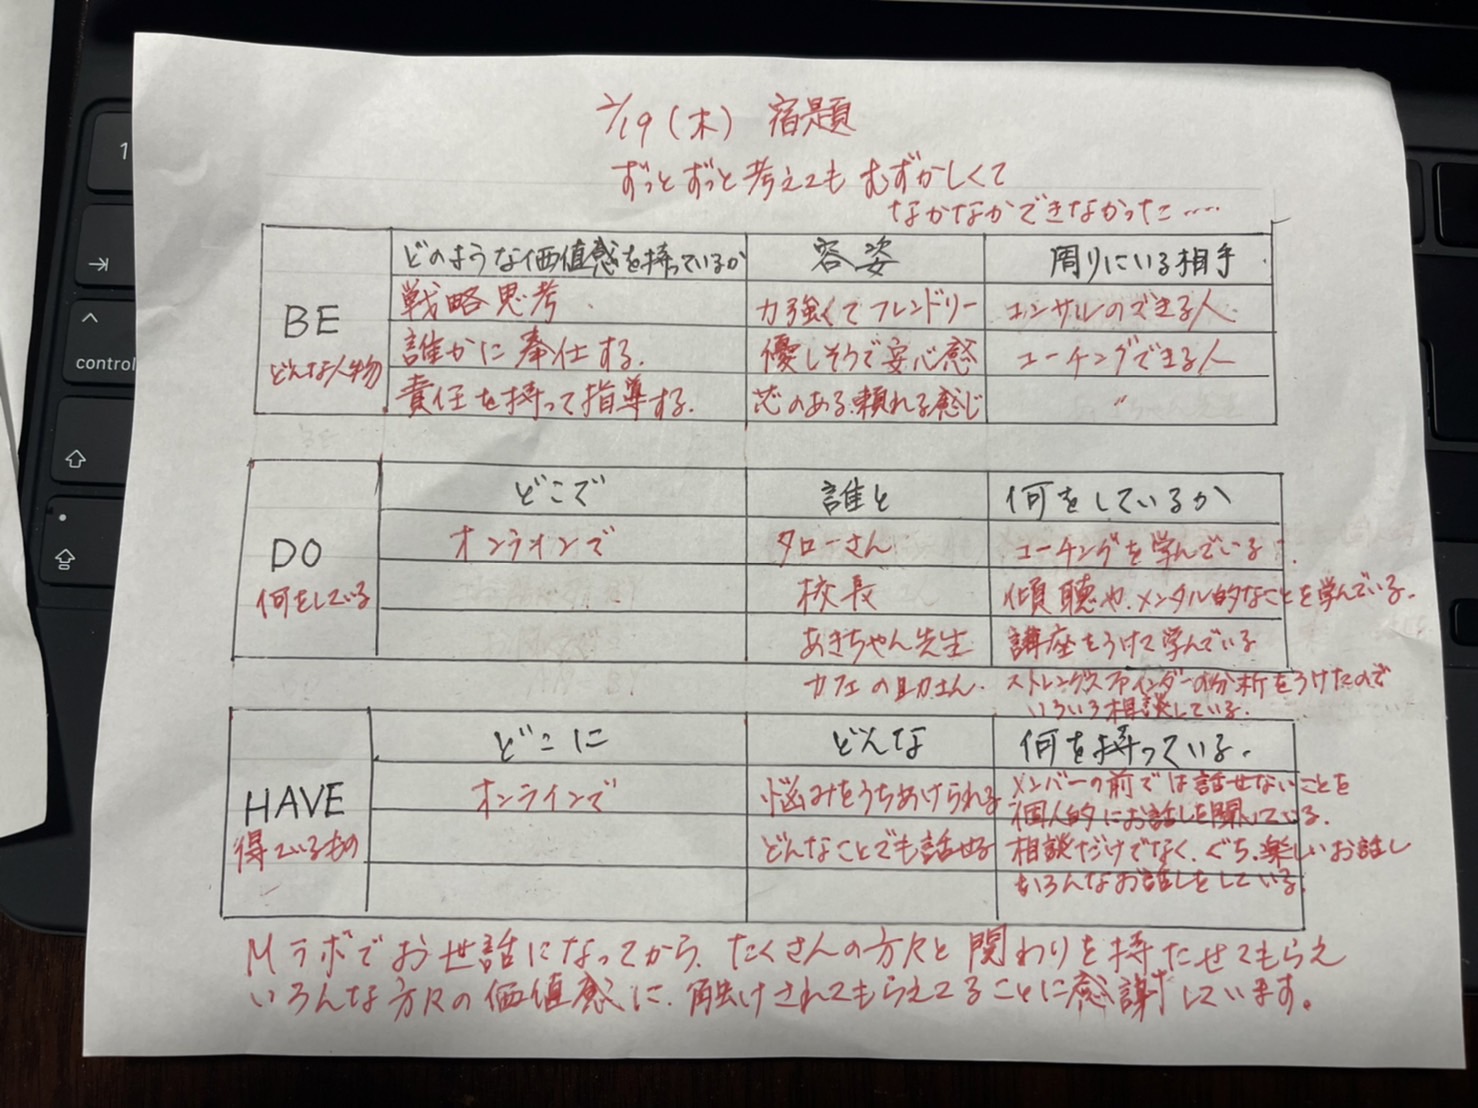 2/19(木) 宿題
ずっとずっと考えてもむずかしくて
なかなかできなかった……
どのような価値感を持っているか 容姿 周りにいる相手
BE
どんな人物
戦略思考 力強くてフレンドリー コンサルのできる人
誰かに奉仕する. 優しそうで安心感 コーチングできる人
責任を持って指導する. 芯のある.頼れる感じ 〃
どこで 誰と 何をしているか
DO
何をしている
オンラインで タローさん コーチングを学んでいる.
校長 傾聴や、メンタル的なことを学んでいる.
あきちゃん先生 講座をうけて学んでいる
カフェの助さん. ストレングスファインダーの分析をうけたので
いろいろ相談している.
どこに どんな 何を持っている.
HAVE
得ているもの
オンラインで 悩みをうちあけられる メンバーの前では話せないことを
個人的にお話しを聞いている.
どんなことでも話せる 相談だけでなく、ぐち、楽しいお話し
いろんなお話しをしている.
Mラボでお世話になってから、たくさんの方々と関わりを持たせてもらえ
いろんな方々の価値感に、触れさせてもらえてることに感謝しています。
1
control